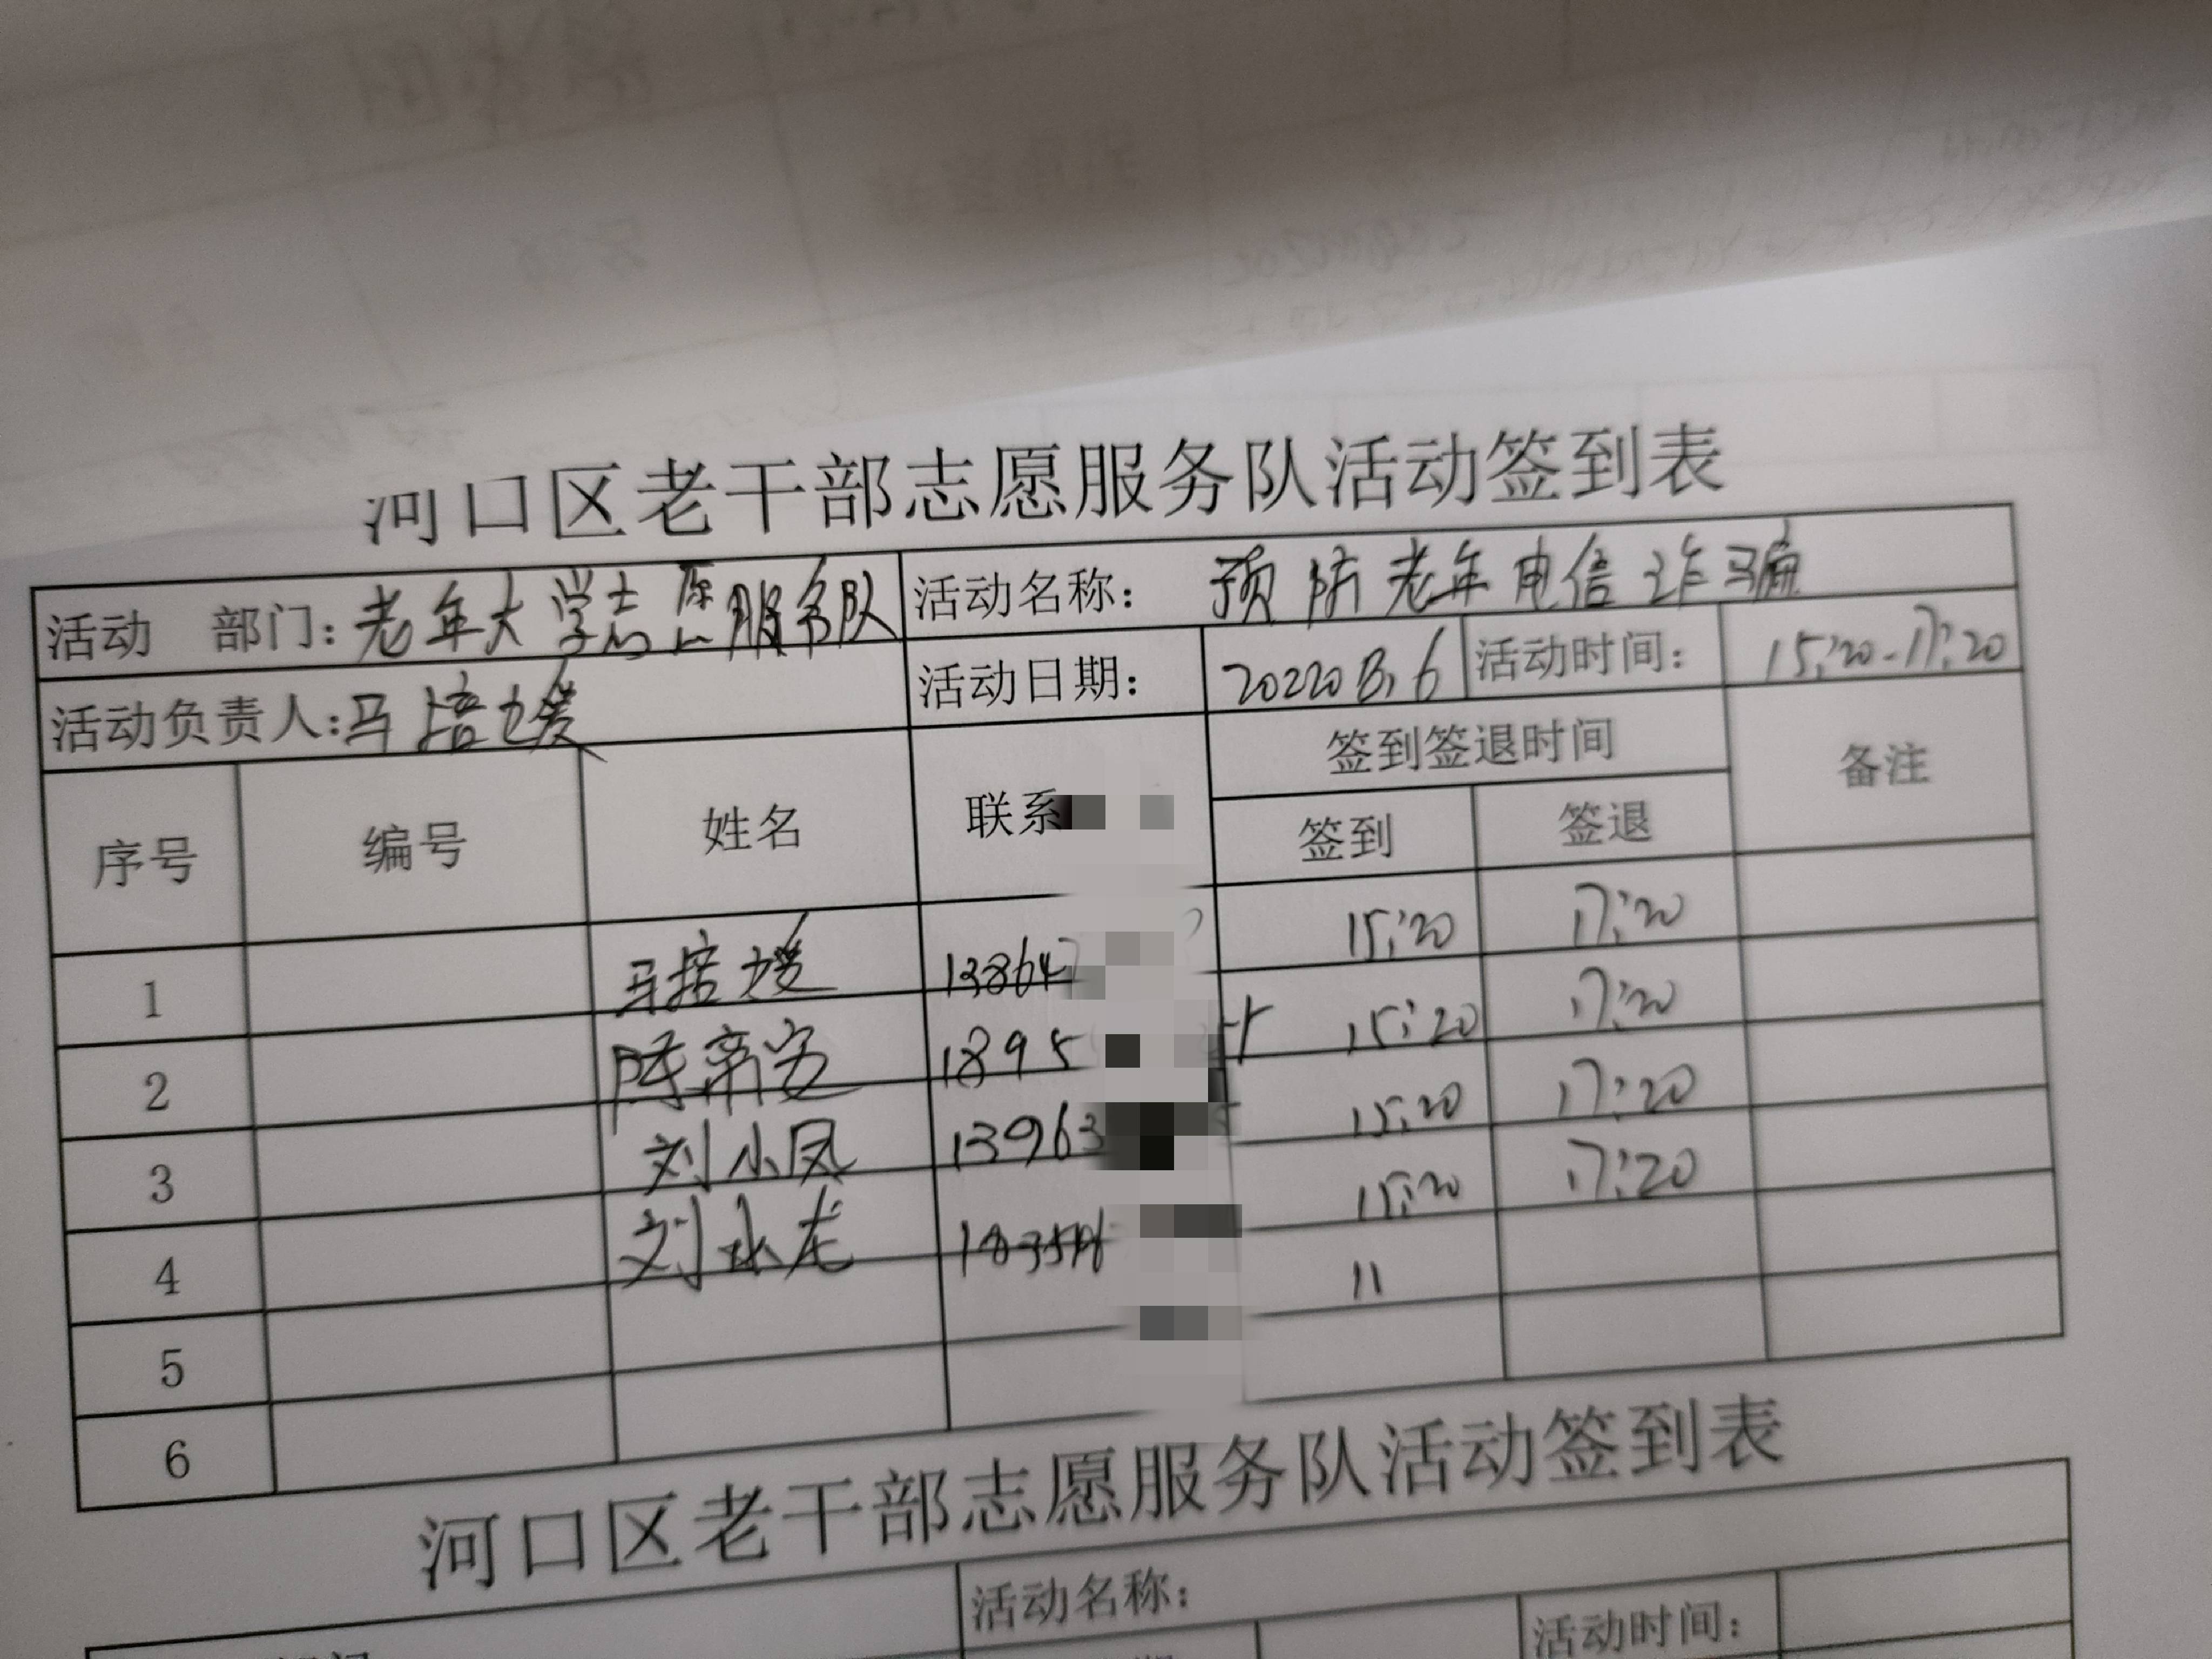 河口区老干部志愿服务队活动签到表
活动 部门：老年大学志愿服务队 活动名称： 预防老年电信诈骗
活动负责人：马培媛 活动日期： 活动时间： 15:20-17:20
序号 编号 姓名 联系 签到签退时间 备注
签到 签退
1 马培媛 13864 15:20 17:20
2 陈 1895 15:20 17:20
3 刘小凤 13963 15:20 17:20
4 刘永龙 15:20 17:20
5 11
6
河口区老干部志愿服务队活动签到表
活动名称：
活动时间：